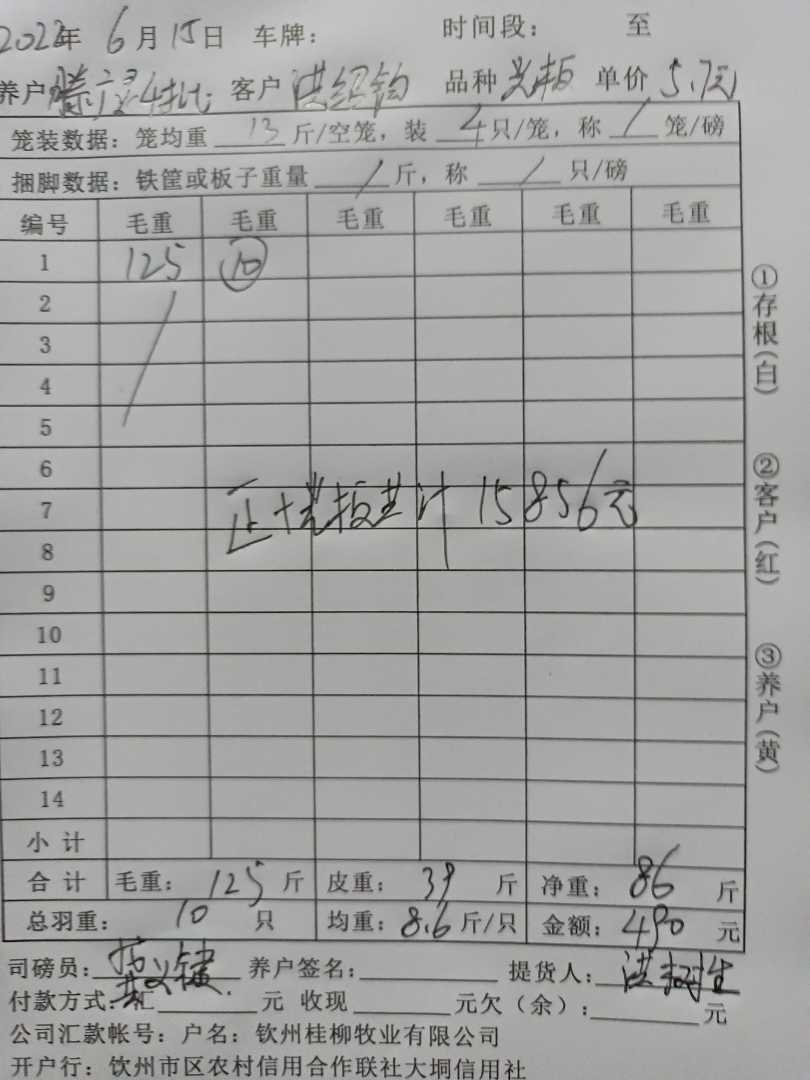 2022年 6月15日 车牌： 时间段： 至
养户 客户 洪绍钧 品种 光板 单价 5.7元
笼装数据：笼均重 13 斤/空笼，装 4只/笼，称 / 笼/磅
捆脚数据：铁筐或板子重量 / 斤，称 / 只/磅
编号 毛重 毛重 毛重 毛重 毛重 毛重
1 125 10
2
3
4
5
6
7 正+光板共计 15856元
8
9
10
11
12
13
14
小计
合计 毛重：125斤 皮重：39斤 净重：86斤
总羽重：10只 均重：8.6斤/只 金额：490元
司磅员： 养户签名： 提货人：洪
付款方式：汇 元 收现 元欠（余）： 元
公司汇款帐号：户名：钦州桂柳牧业有限公司
开户行：钦州市区农村信用合作联社大垌信用社
①存根（白）
②客户（红）
③养户（黄）